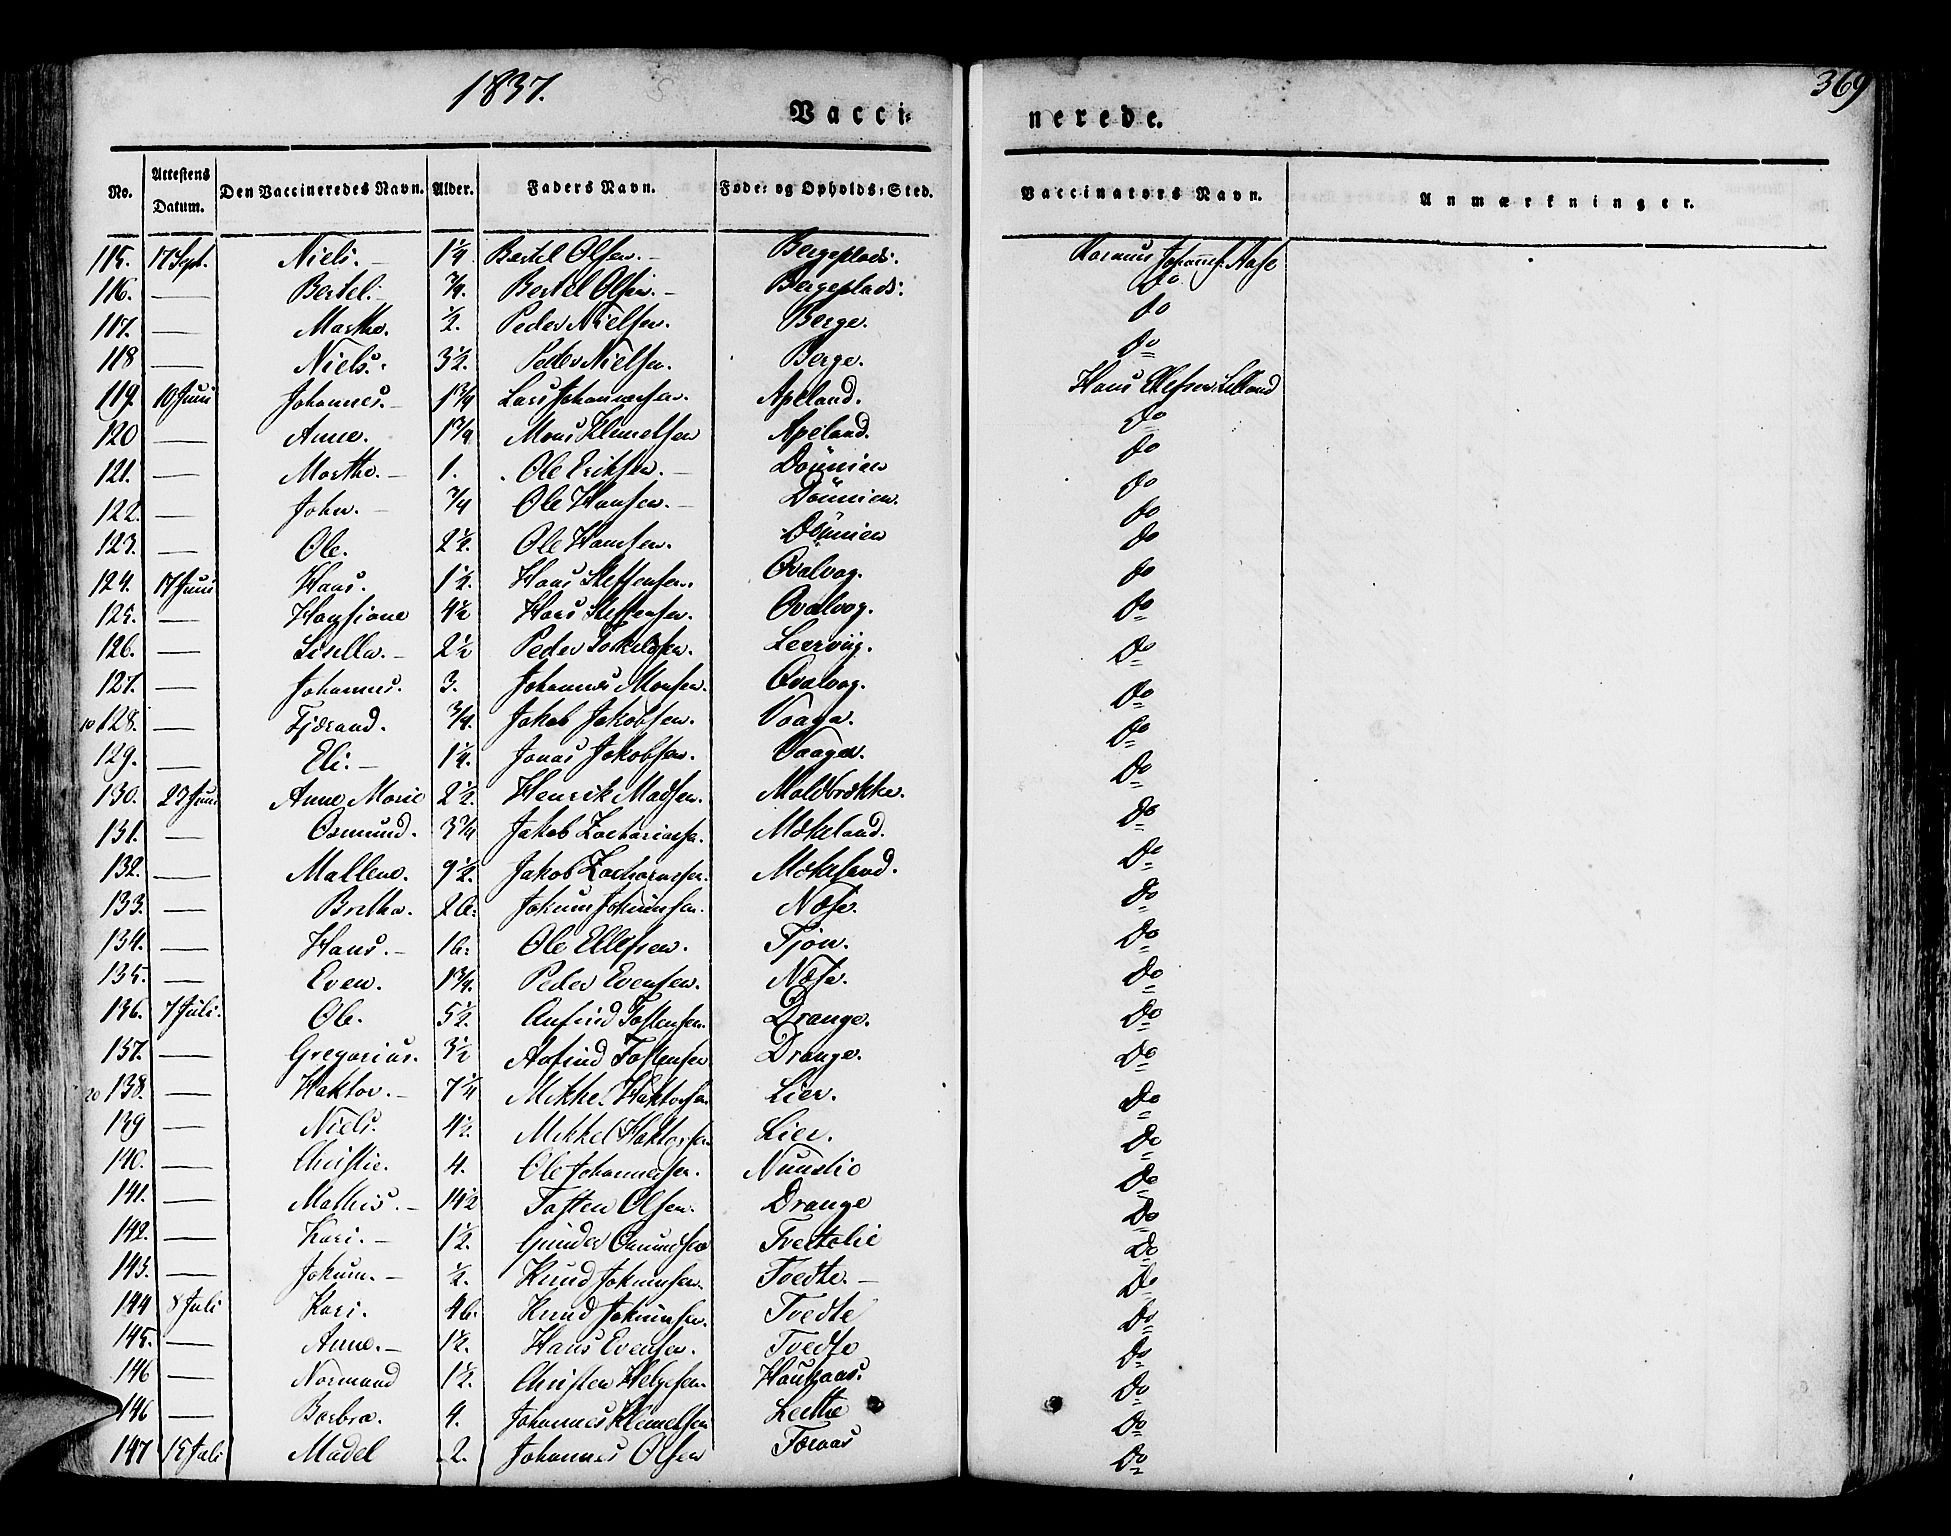 1837.
369
Vacci-
nerede.
No. Attestens Datum. Den Vaccineredes Navn. Alder. Faders Navn. Føde- og Opholds-Sted. Vaccinators Navn. Anmærkninger.
115. 17 Sept. Niels. — 1¼ Bertel Olsen. — Bergeplads. Rasmus Johannes. Aase
116. — Bertel. — ¾. Bertel Olsen. — Bergeplads. Do
117. — Marthe. ½. Peder Nielsen. Berge. Do
118 — Niels. 3½. Peder Nielsen. Berge. Do
119. 10 Juni Johannes. — 1¾ Lars Johannessen. Apeland. Hans
120 — Anne. 1¾ Mons Klemetsen Apeland. Do
121. — Marthe. — 1. Ole Eriksen. — Do
122. — John. — ¾ Ole Hansen. — Do
123. — Ole. 2½. Ole Hansen. Do
124. 17 Juni Hans. 1½. Hans Steffensen. Qvalvog. Do
125. — Hansiane 4½ Hans Steffensen. Qvalvog. Do
126. — Lisella. — 2½ Peder Leervig. Do
127. — Johannes. 3. Johannes Monsen. Qvalvog. Do
10 128. — Tjerand. ¾. Jakob Jakobsen. Vaage. Do
129. — Eli. — 1¼. Jonas Jakobsen. Vaage. Do
130. 23 Juni Anne Marie 2½. Henrik Madsen. Moldbrække. Do
131. — Osmund. 3¾ Jakob Zachariassen. Mækeland. Do
132. — Mallene. 9½. Jakob Zachariassen. Mækeland. Do
133. — Brethe. 26. Jokum Jokumsen. Næse. Do
134. — Hans. — 16. Ole Ellefsen. Tjon. Do
135. — Even. 1¾. Peder Evensen. Næse. Do
136. 7 Juli. Ole. 5½. Anfind Tostensen. Drange. Do
137. — Gregorius. 3½ Anfind Tostensen Drange. Do
20 138. — Haktor. — 7¼ Mikkel Haktorsen Lier. Do
139 — Niels. 4½. Mikkel Haktorsen Lier. Do
140. — Christie. 4. Ole Johannessen. Nunslie Do
141. — Mathis. — 14½ Tosten Olsen. Drange Do
142. — Kari. — 1½. Gunder Osmundsen Tveitelie Do
143. — Jokum. — ½. Knud Jokumsen. Tvedte. — Do
144 8 Juli Kari. 46. Knud Jokumsen. Tvedte Do
145. — Anne. — 1½. Hans Evensen. Tvedte Do
146 — Normand 1½. Christen Helgesen. Haugaas. Do
146 — Barbra. 4. Johannes Klemetsen Leethe Do
147 15 Juli Madel 2. Johannes Olsen Toraas Do